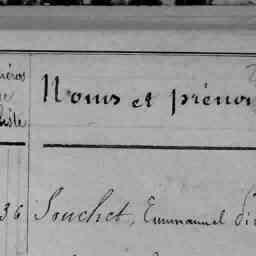 méros
de
liste
Noms et préno
36 Souchet, Emmanuel